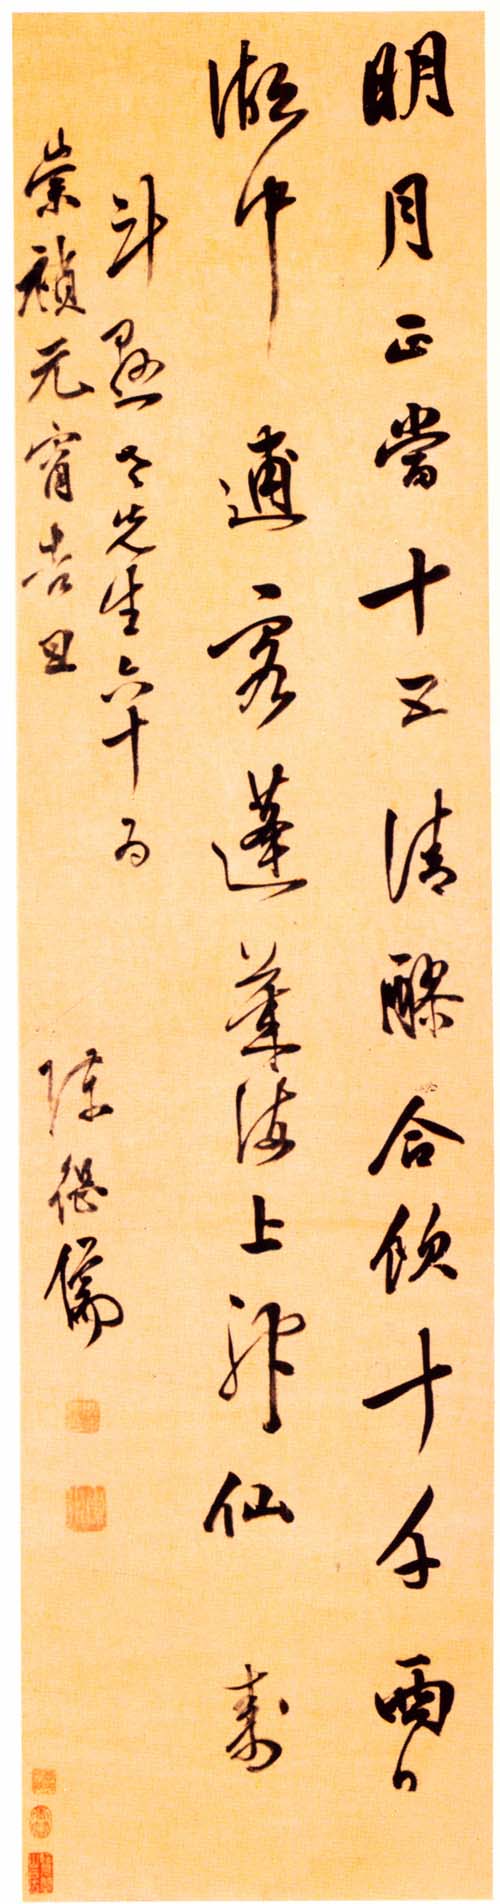 明月正當十五清醪合飲十千
湖中逋客蓬萊海上神仙 壽
斗 老先生六十
崇禎元宵吉旦 陳繼儒